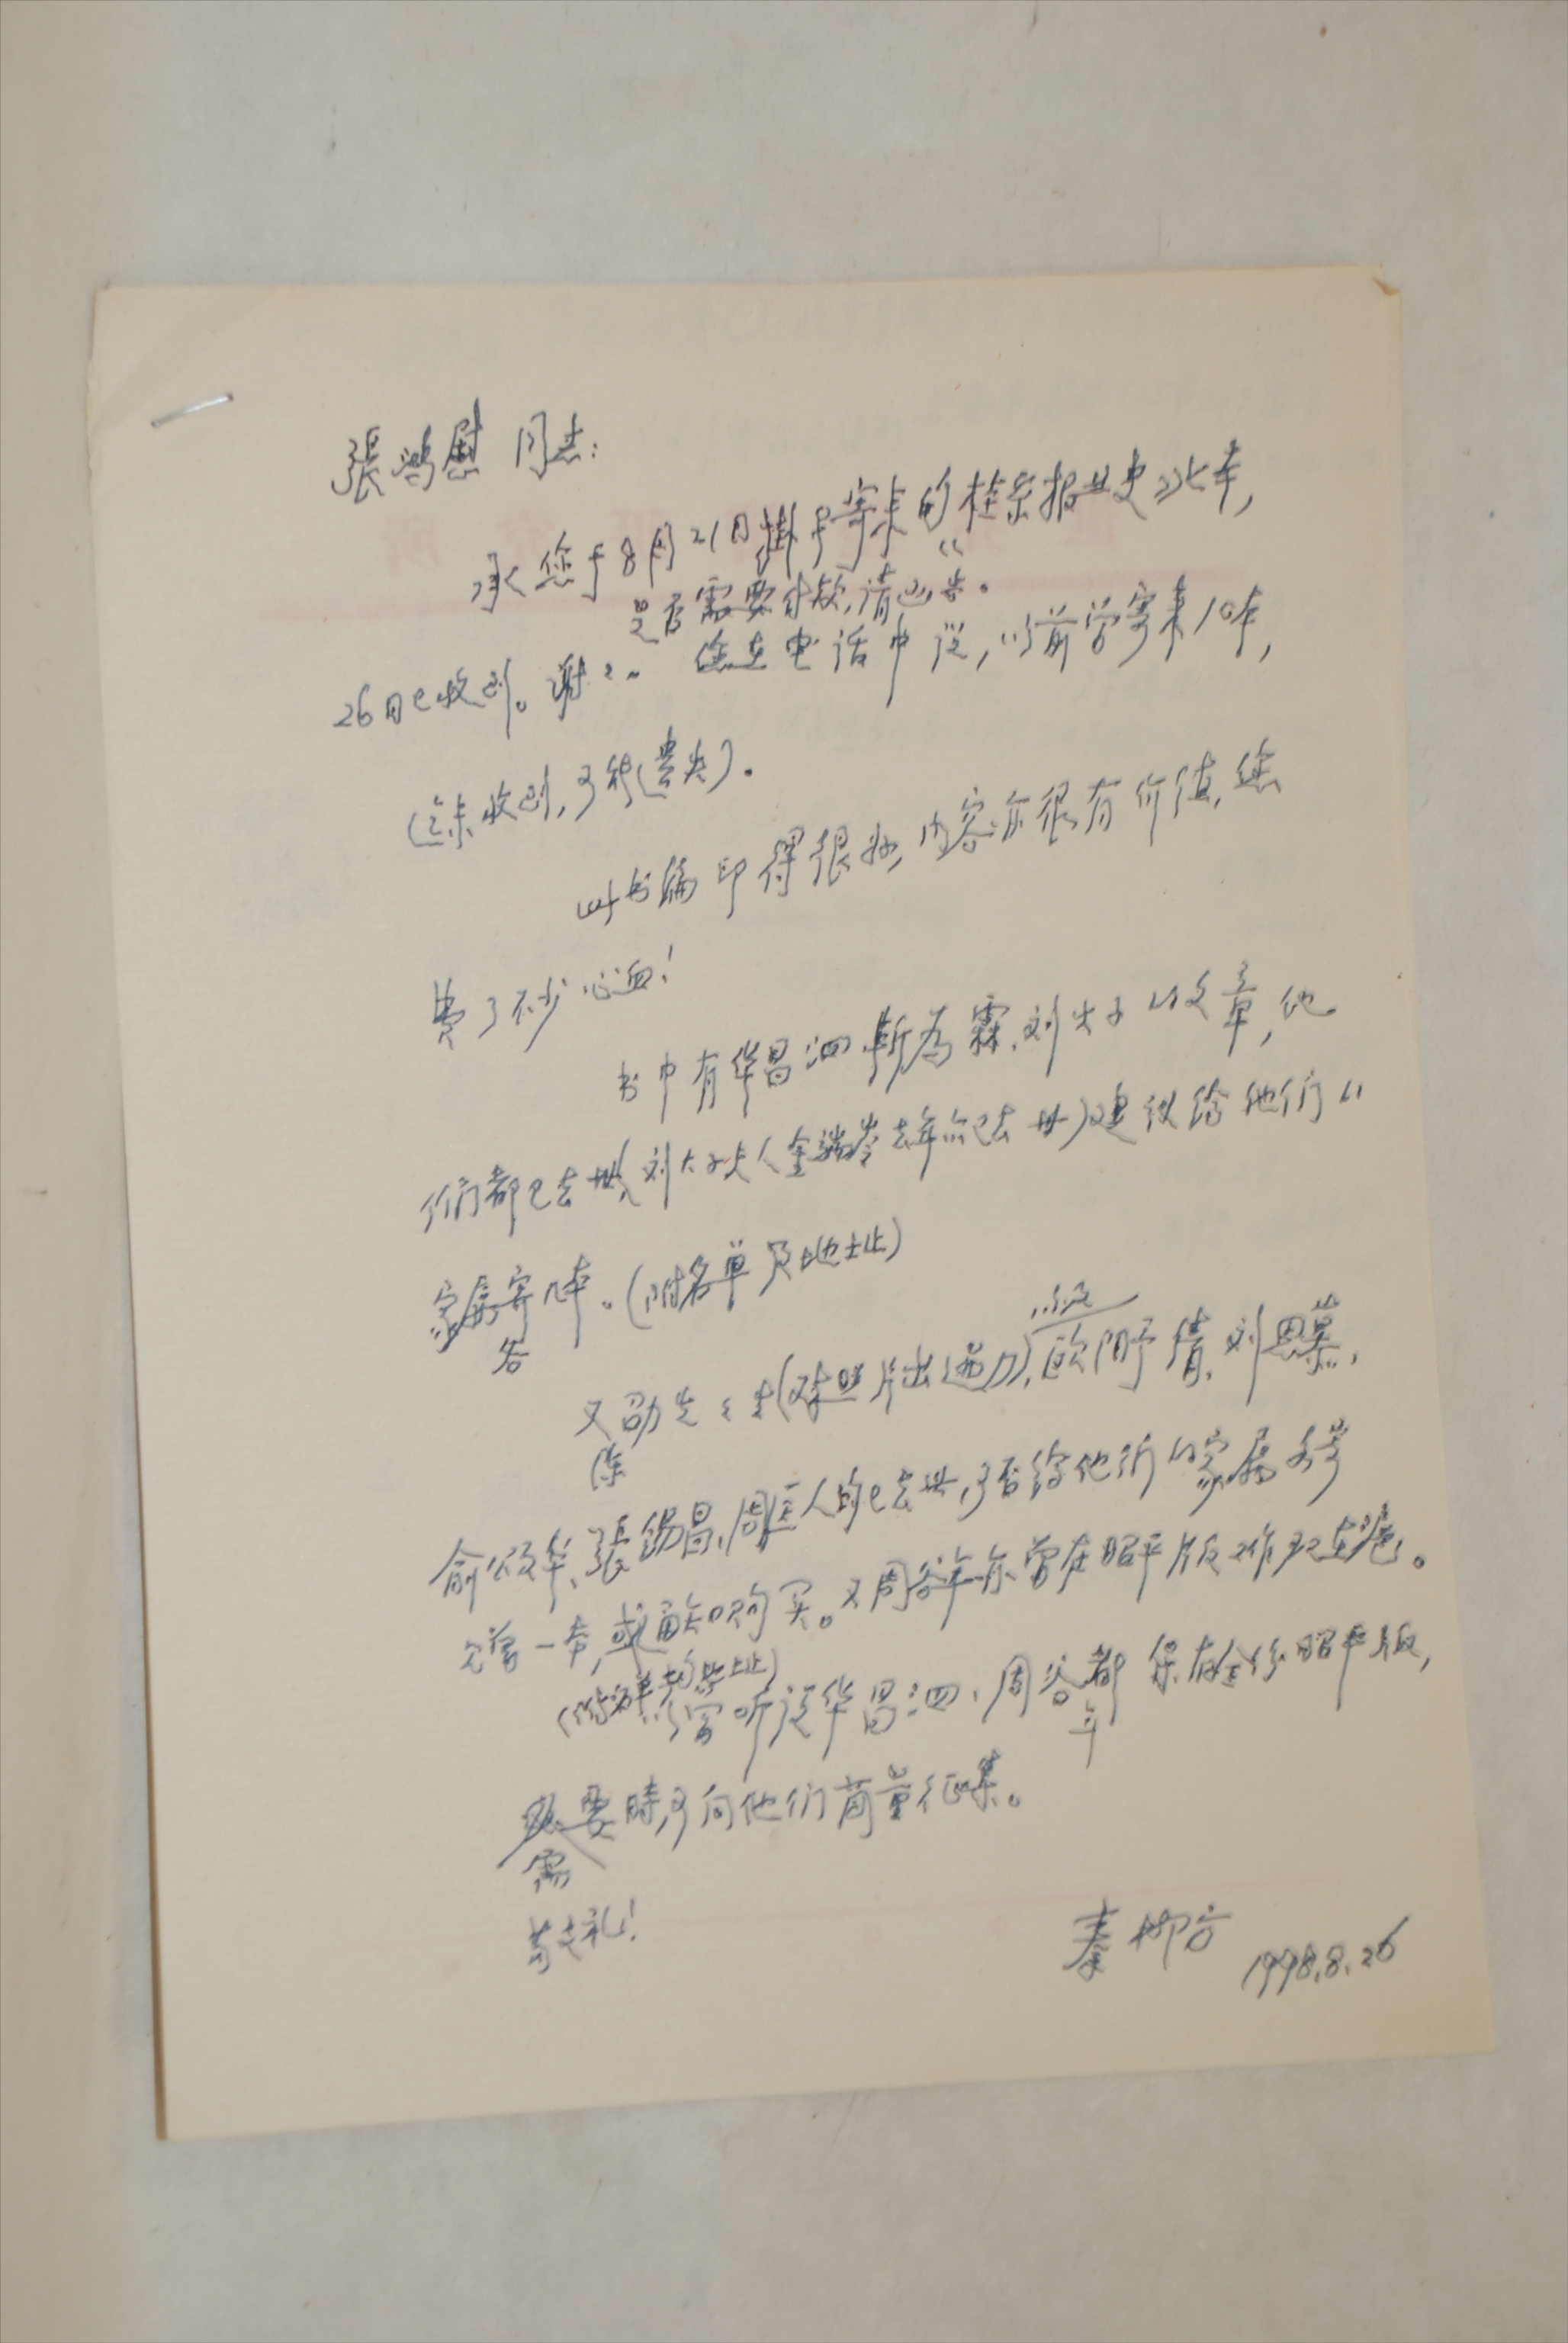 張鸿慰 同志：
承您于8月21日掛号寄来的“桂林报业史”此本，
是否需要付款，请函告。
26日已收到。谢谢。您在电话中说，以前曾寄来10本，
（未收到，可能遗失）。
此书编印得很好，内容亦很有价值，您
费了不少心血！
书中有华昌泗、靳为霖、刘火子的文章，他
们都已去世（刘火子夫人金端苓去年亦已去世）建议给他们的
家属寄几本。（附名单及地址）
各
又劭先先生（照片出过力），以及欧阳予倩、刘思慕、
陈
俞颂华、張锡昌、周匡人均已去世，可否给他们的家属各寄
一本，或通知购买。又周谷年亦曾在昭平版工作现在港。
（附名单地址）
曾听说华昌泗、周谷都保存全份昭平版，
年
要時可向他们商量征集。
需
敬礼！
秦柳方 1998.8.26